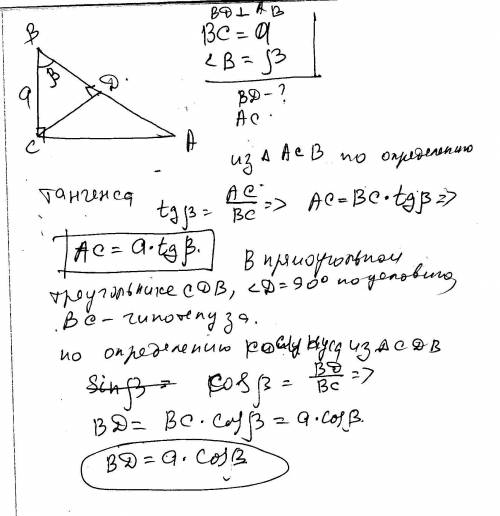 BD ⊥ AB
BC = a
∠B = β
BD - ?
AC.
B
β
D
a
C
A
из Δ ACB по определению
тангенса
tgβ = AC/BC => AC = BC·tgβ =>
AC = a·tgβ.
В прямоугольном
треугольнике CDB, ∠D = 90° по условию,
BC - гипотенуза.
по определению косинуса из ΔCDB
Sinβ = cosβ = BD/BC =>
BD = BC·cosβ = a·cosβ.
BD = a·cosβ